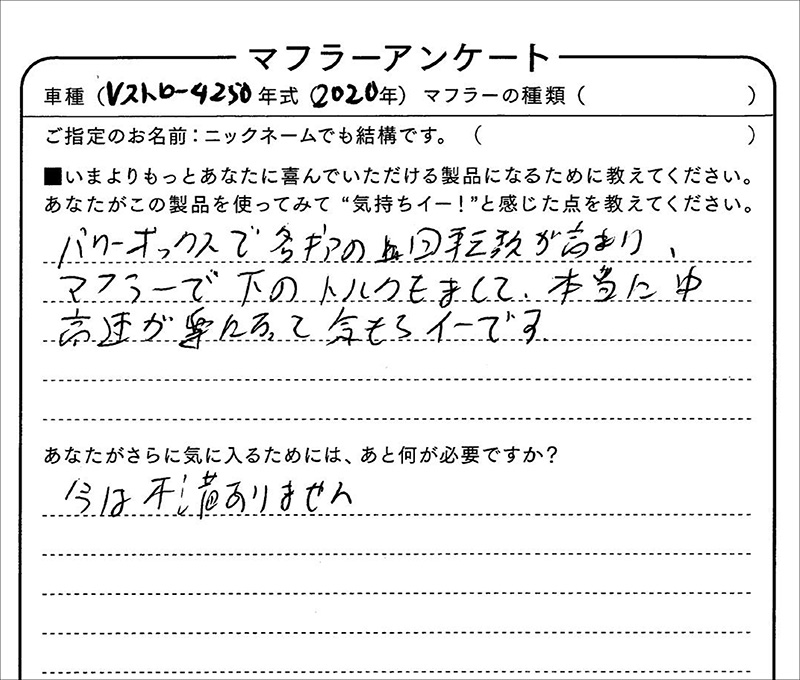 マフラーアンケート
車種（Vストローム250年式（2020年）マフラーの種類（　　　）
ご指定のお名前：ニックネームでも結構です。（　　　）
■いまよりもっとあなたに喜んでいただける製品になるために教えてください。
あなたがこの製品を使ってみて“気持ちイー！”と感じた点を教えてください。
パワーボックスで各ギアの回転数が高まり、
マフラーで下のトルクもまして、本当に中
高速が楽になって気もちイーです
あなたがさらに気に入るためには、あと何が必要ですか？
今は不満ありません